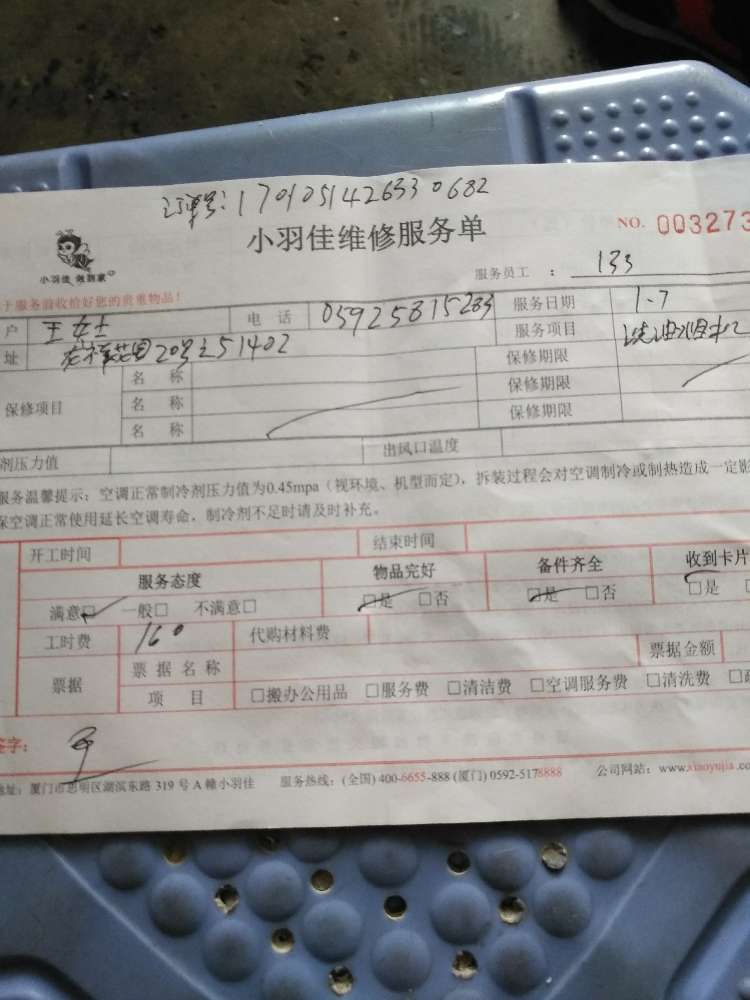 订单号:1701051426330682
小羽佳维修服务单
NO. 003273
小羽佳 做到家
服务员工 : 133
于服务前收拾好您的贵重物品!
户 王女士 电 话 05925815283 服务日期 1.7
址 花园20号之51402 服务项目 洗油烟机
保修项目 名 称 保修期限
名 称 保修期限
名 称 保修期限
剂压力值 出风口温度
服务温馨提示:空调正常制冷剂压力值为0.45mpa(视环境、机型而定),拆装过程会对空调制冷或制热造成一定影
保空调正常使用延长空调寿命,制冷剂不足时请及时补充。
开工时间 结束时间
服务态度 物品完好 备件齐全 收到卡片
满意□ 一般□ 不满意□ □是 □否 □是 □否 □是
工时费 160 代购材料费
票据 票据名称 票据金额
项 目 □搬办公用品 □服务费 □清洁费 □空调服务费 □清洗费
签字:
地址:厦门市思明区湖滨东路 319 号 A 幢小羽佳 服务热线:(全国) 400-6655-888 (厦门) 0592-5178888 公司网站:www.xiaoyujia.co